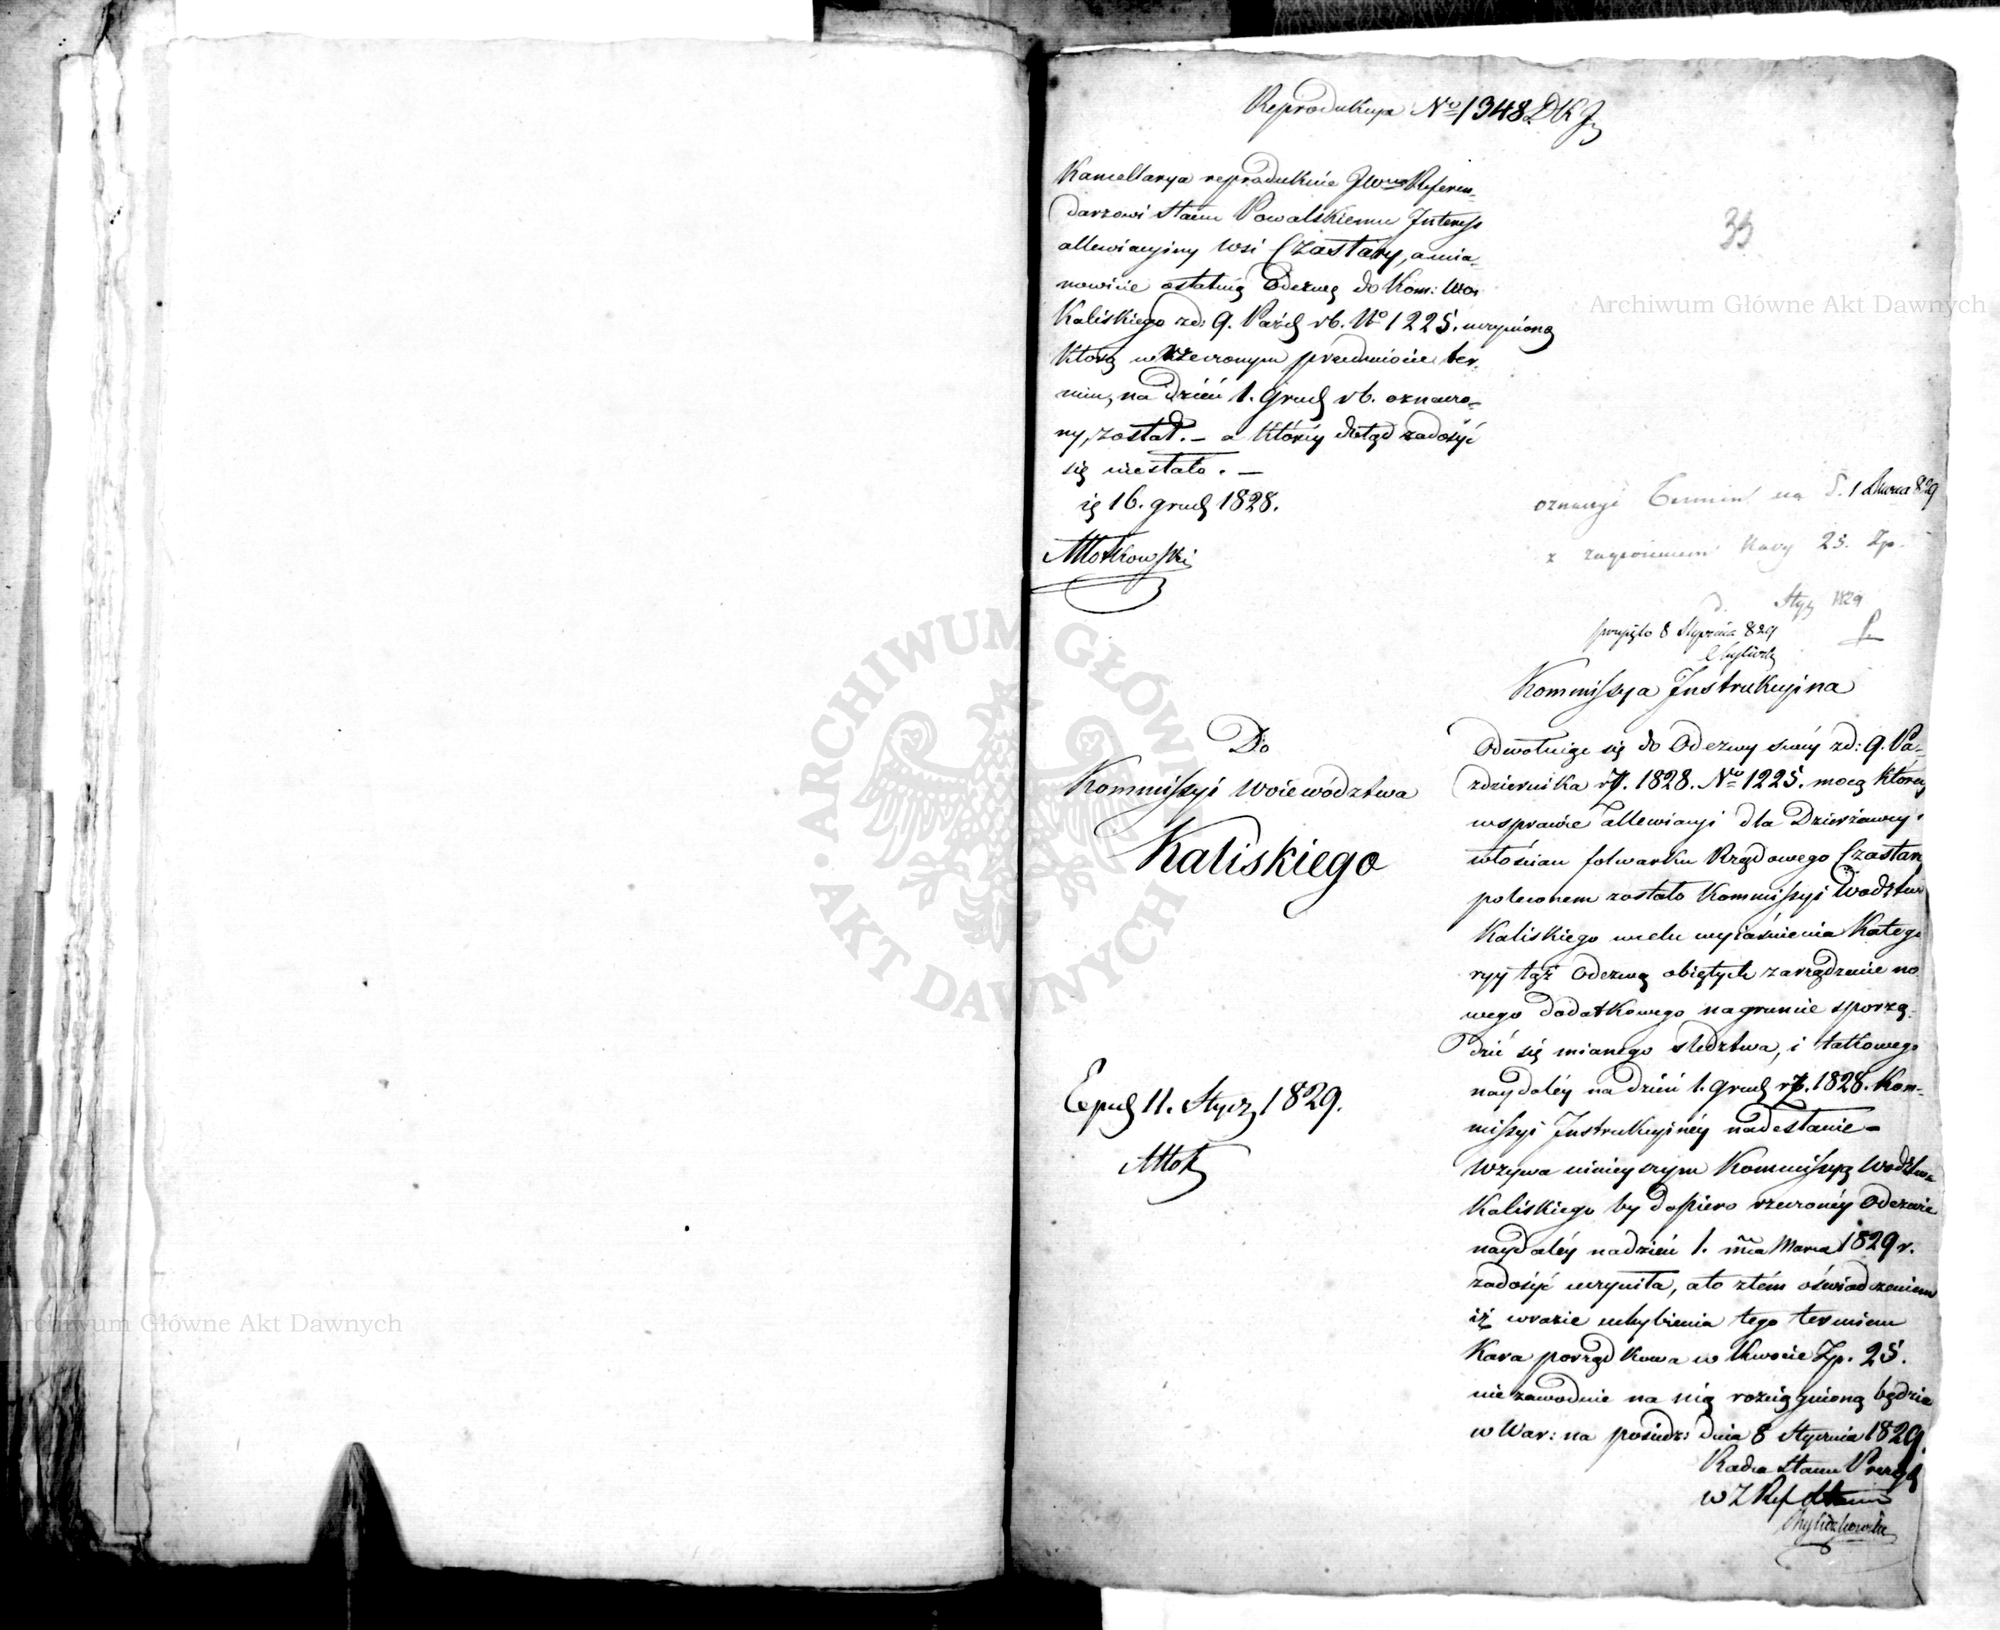 Reprodukcya No 1348 DKJ
33
Kancellarya reprodukuie JWmu Referen-
darzowi Stanu Powalskiemu Interess
allewiacyiny wsi Czastary, a mia-
nowicie ostatnią Odezwę do Kom: Woi
Kaliskiego zd: 9. Paźd rb. No 1225. uczynioną
którą w rzeczonym przedmiocie ter-
min, na dzień 1. Grud rb. oznaczo-
ny, został. — a któréy dotąd zadosyć
się niestało. —
16. grud 1828.
Młotkowski
oznaczyć Termin na d. 1 Marca 829
z zagrożeniem Kary 25. Zp.
Stycz 1829
przyięto 8 Stycznia 829
Kommissya Instrukcyina
Do
Kommissyi Woiewództwa
Kaliskiego
Exped 11. Stycz 1829.
Młotk
Odwołuiąc się do Odezwy swéy zd: 9. Pa-
zdziernika rz. 1828. No 1225. mocą któréy
w sprawie allewiacyi dla Dzierżawcy i
włościan folwarku Rządowego Czastary
poleconem zostało Kommissyi Wodztwa
Kaliskiego w celu wyiaśnienia Katego
ryy tąż Odezwą obiętych zarządzenie no
wego dodatkowego na gruncie sporzą-
dzić się mianego śledztwa, i takowego
naydaléy na dzień 1. grud rz. 1828. Kom-
missyi Instrukcyinéy nadesłanie —
Wzywa ninieyszym Kommissyą Wodztwa
Kaliskiego by dopiero rzeczonéy Odezwie
naydaléy na dzień 1. mca Marca 1829 r.
zadosyć uczyniła, a to z tém oświadczeniem
iż w razie uchybienia tego terminu
Kara porządkowa w kwocie Zp. 25.
niezawodnie na nią rozciągnioną będzie
w War: na posiedz: dnia 8 Stycznia 1829.
Radca Stanu Prezyd
w Z Ref Stanu
Archiwum Główne Akt Dawnych
Archiwum Główne Akt Dawnych
ARCHIWUM GŁÓWNE AKT DAWNYCH